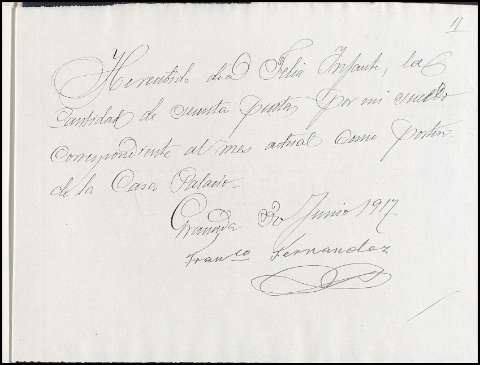 11
He recibido de D Felix Infante, la
Cantidad de cuarenta pesetas por mi sueldo
correspondiente al mes actual como portero
de la Casa Palacio.
Granada 30 Junio 1917
Franco Fernandez